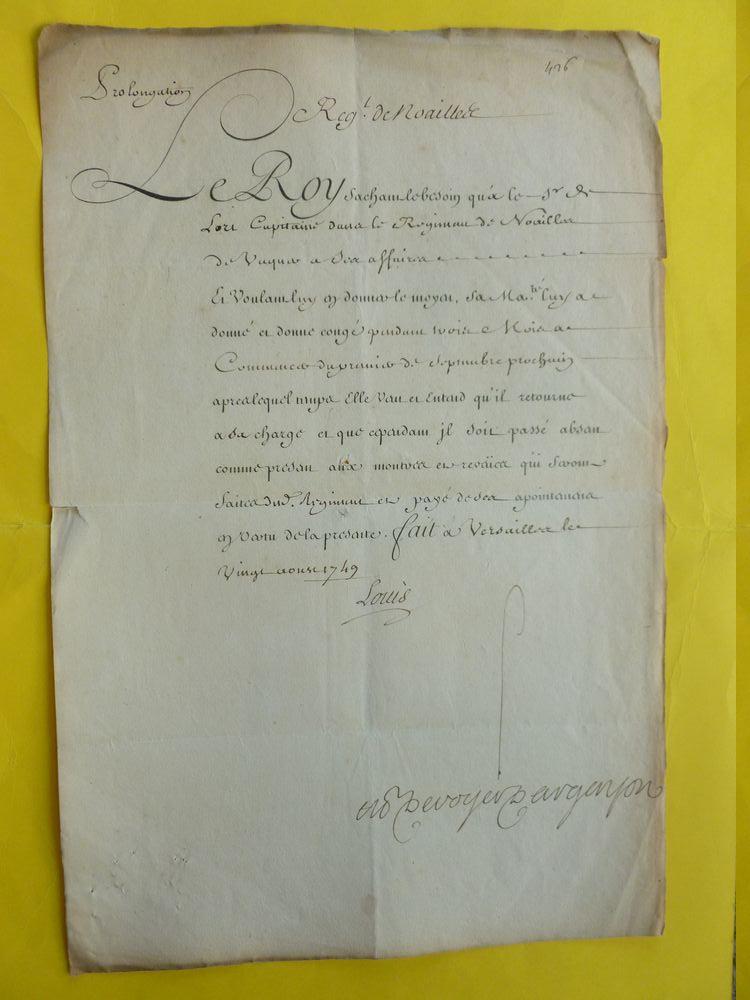 426
Prolongation
Regt. de Noailles
Le Roy Sachant le besoin qu'a le Sr. de
Lort Capitaine dans le Regiment de Noailles
de Vaquer a Ses affaires
Et Voulant luy en donner le moyen, Sa Ma.té luy a
donné et donne congé pendant trois Mois a
Commencer du premier de Septembre prochain
apres lequel temps Elle Veut et Entend qu'il retourne
a Sa charge et que cependant il Soit passé absent
comme present aux montres et reveües qui Seront
faites dud. Regiment et payé de Ses apointements
en Vertu de la presente. fait a Versailles le
Vingt aoust 1749
Louis
De voyer D'argenson